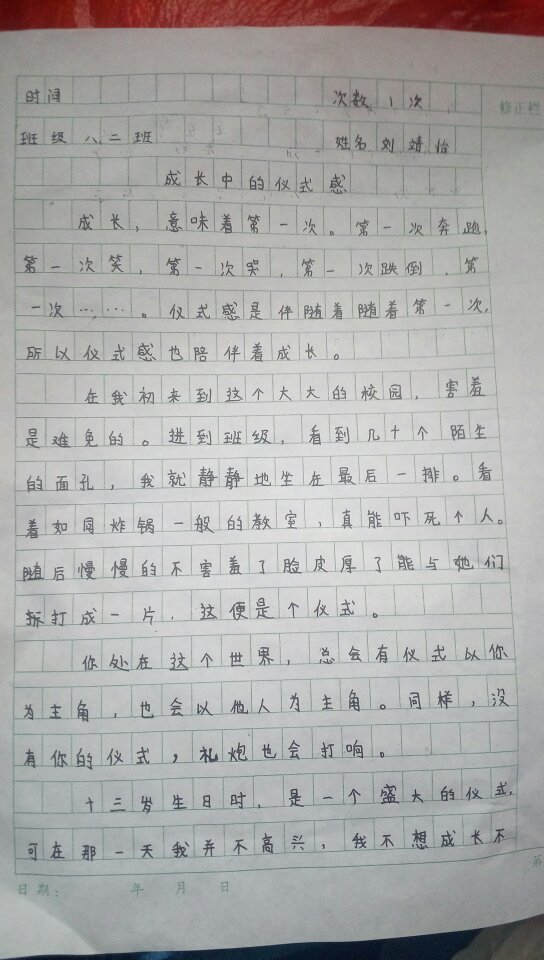 时间 次数 1 次
修正栏
班级 八二班 姓名 刘靖怡
成长中的仪式感
成长，意味着第一次。第一次奔跑，
第一次笑，第一次哭，第一次跌倒，第
一次……。仪式感是伴随着随着第一次，
所以仪式感也陪伴着成长。
在我初来到这个大大的校园，害羞
是难免的。进到班级，看到几十个陌生
的面孔，我就静静地坐在最后一排。看
着如同炸锅一般的教室，真能吓死个人。
随后慢慢的不害羞了脸皮厚了能与她们
拆打成一片，这便是个仪式。
你处在这个世界，总会有仪式以你
为主角，也会以他人为主角。同样，没
有你的仪式，礼炮也会打响。
十三岁生日时，是一个盛大的仪式，
可在那一天我并不高兴，我不想成长不
日期： 年 月 日
第